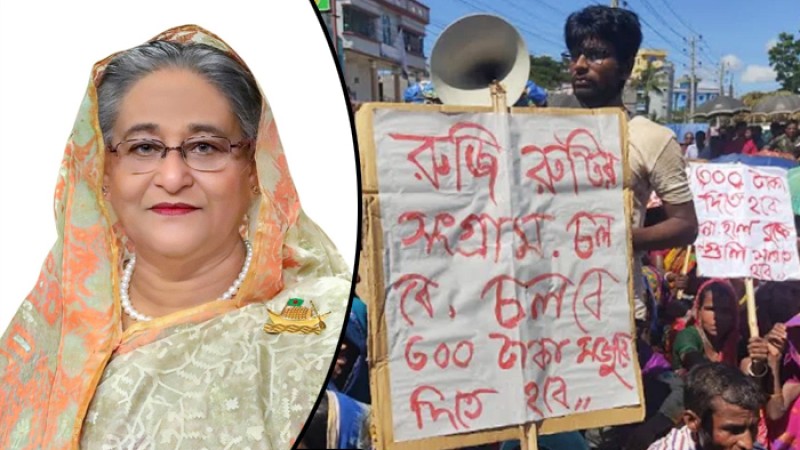 রুজি রুটির
সংগ্রাম. চল
বে, চলবে
৩০০ টাকা মজুরি
দিতে হবে,,
৩০০ টাকা
দিতে হবে
না হলে বুকে
গুলি
হবে..